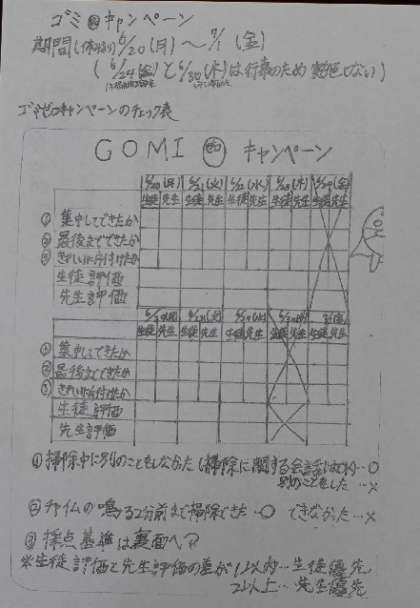 ゴミ㋝キャンペーン
期間(休み明け) 6/20(月)〜7/1(金)
(6/24(金)と6/30(木)は行事のため 実施しない)
ゴミゼロキャンペーンのチェック表
GOMI ゼロ キャンペーン
6/20(月) 6/21(火) 6/22(水) 6/23(木) 6/24(金)
生徒 先生 生徒 先生 生徒 先生 生徒 先生 生徒 先生
① 集中してできたか
② 最後までできたか
③ きれいに片付けたか
生徒評価
先生評価
生徒 先生 生徒 先生 生徒 先生 生徒 先生 生徒 先生
① 集中してできたか
② 最後までできたか
③ きれいに片付けたか
生徒評価
先生評価
① 掃除中に別のことをしなかった(掃除に関する会話は…○
別のことをした…×
② チャイムの鳴る2分前まで掃除できた…○ できなかった…×
③ 採点基準は裏面へ
※生徒評価と先生評価の差が1以内…生徒優先
2以上…先生優先